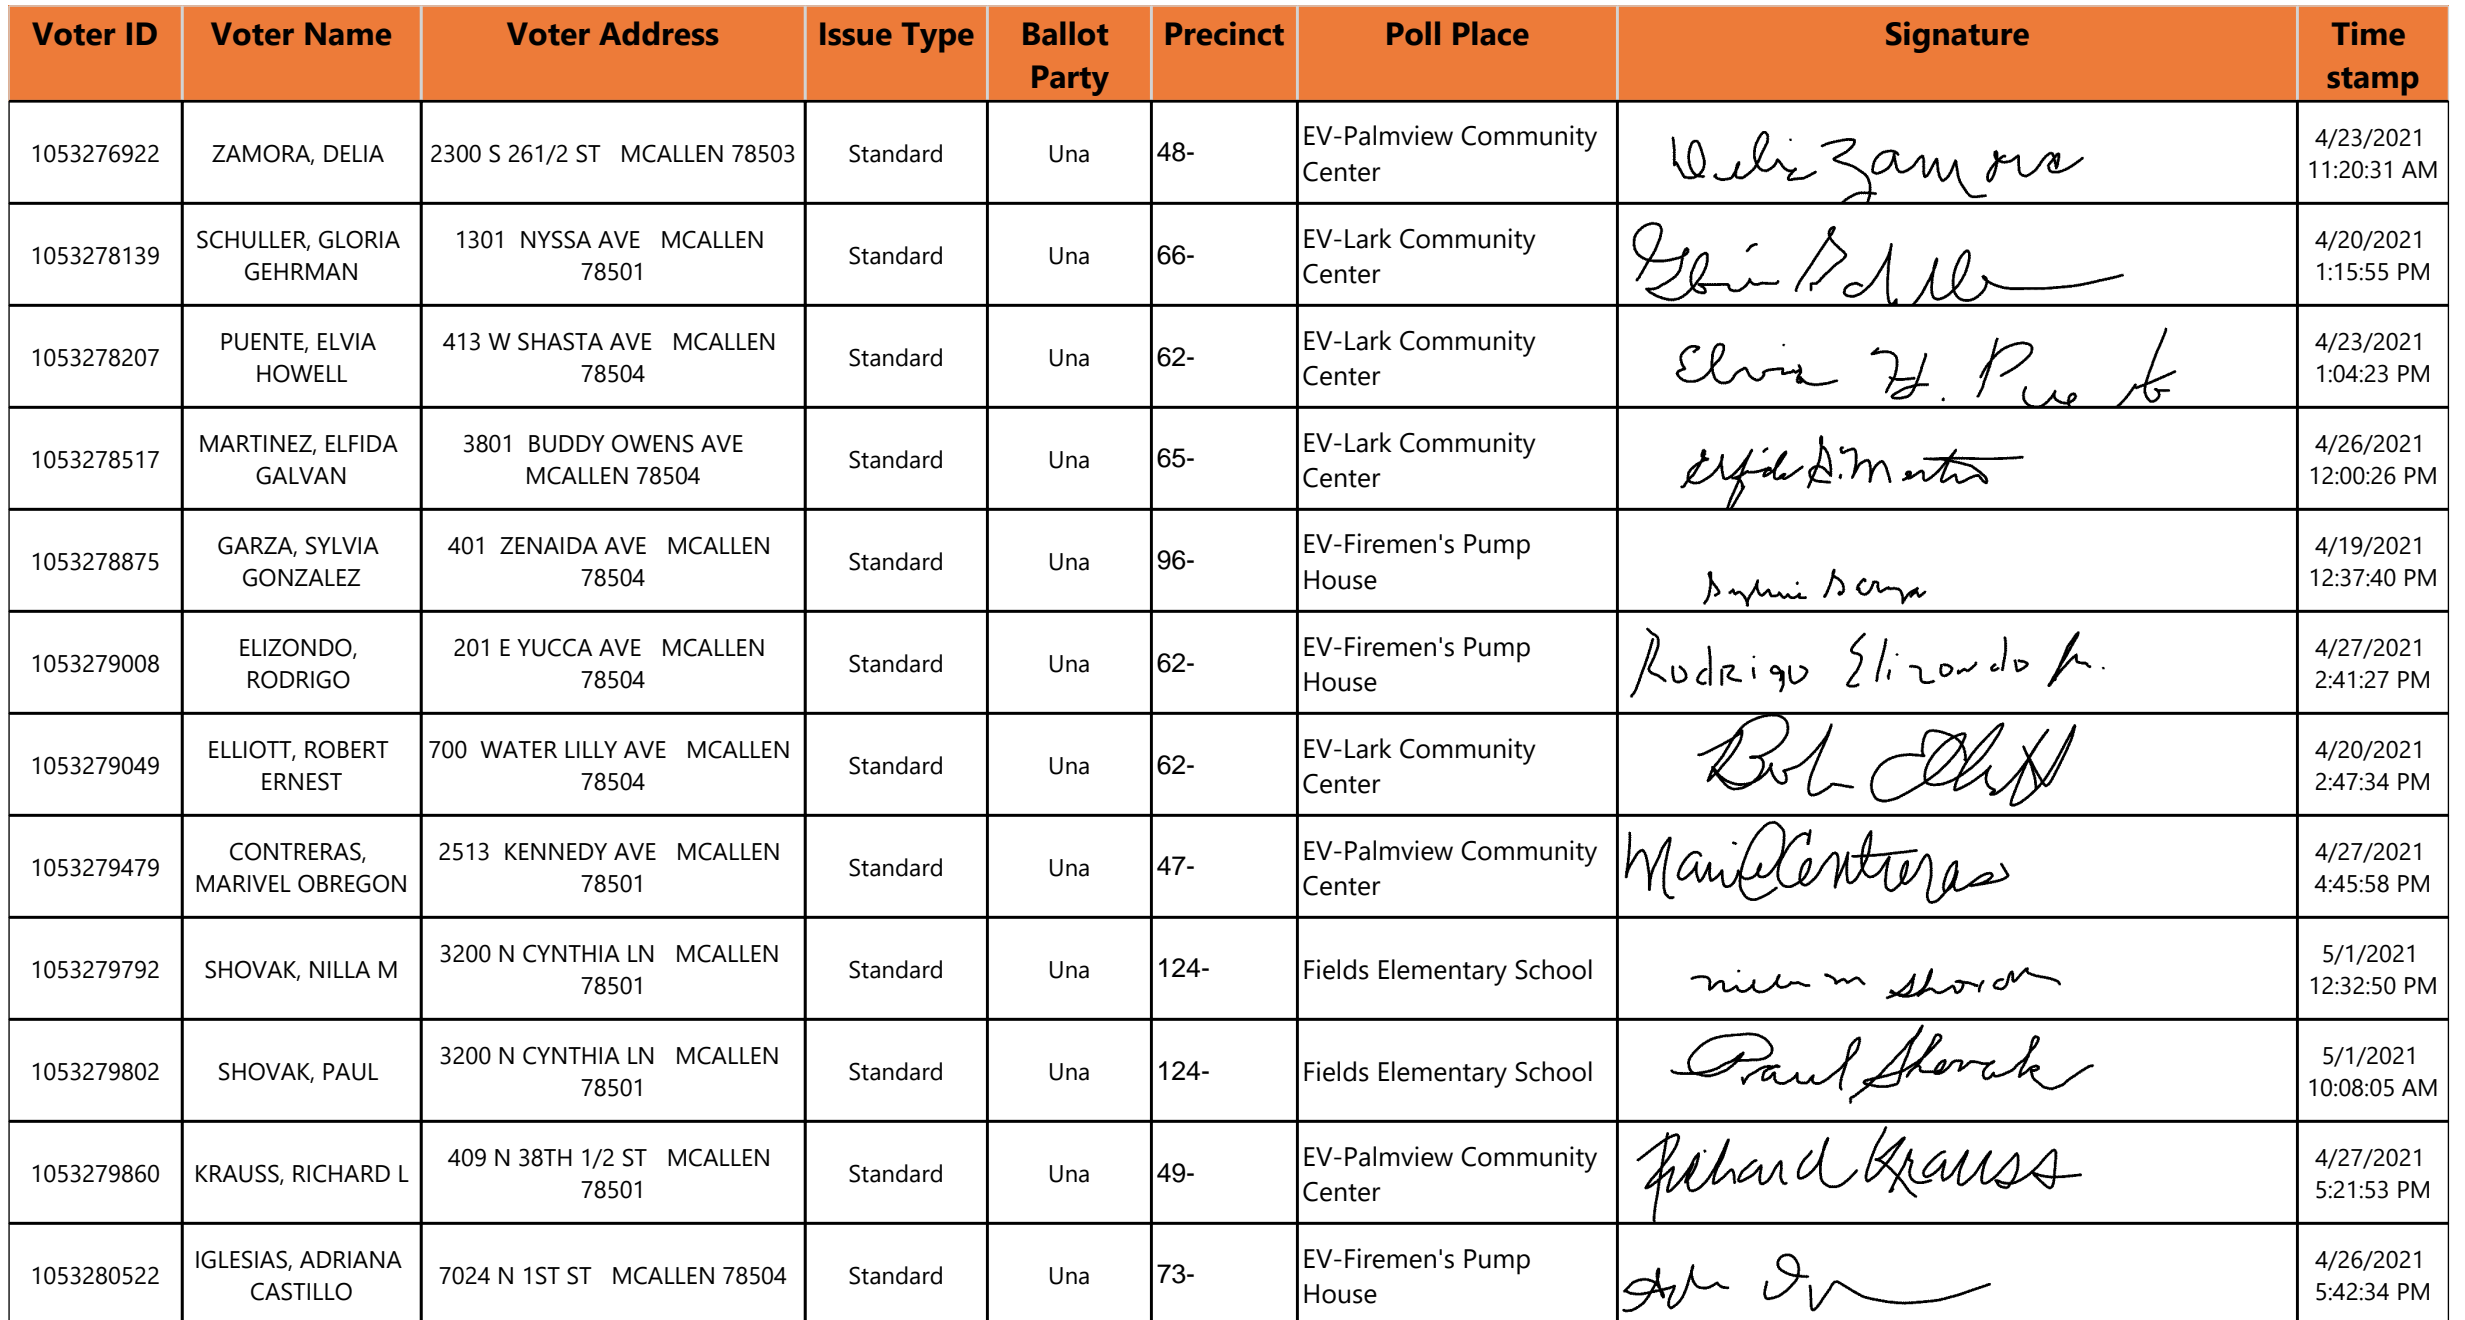 Voter ID Voter Name Voter Address Issue Type Ballot Party Precinct Poll Place Signature Time stamp
1053276922 ZAMORA, DELIA 2300 S 261/2 ST MCALLEN 78503 Standard Una 48- EV-Palmview Community Center Delia Zamora 4/23/2021 11:20:31 AM
1053278139 SCHULLER, GLORIA GEHRMAN 1301 NYSSA AVE MCALLEN 78501 Standard Una 66- EV-Lark Community Center 4/20/2021 1:15:55 PM
1053278207 PUENTE, ELVIA HOWELL 413 W SHASTA AVE MCALLEN 78504 Standard Una 62- EV-Lark Community Center Elvia H. 4/23/2021 1:04:23 PM
1053278517 MARTINEZ, ELFIDA GALVAN 3801 BUDDY OWENS AVE MCALLEN 78504 Standard Una 65- EV-Lark Community Center 4/26/2021 12:00:26 PM
1053278875 GARZA, SYLVIA GONZALEZ 401 ZENAIDA AVE MCALLEN 78504 Standard Una 96- EV-Firemen's Pump House 4/19/2021 12:37:40 PM
1053279008 ELIZONDO, RODRIGO 201 E YUCCA AVE MCALLEN 78504 Standard Una 62- EV-Firemen's Pump House Rodrigo Elizondo Jr. 4/27/2021 2:41:27 PM
1053279049 ELLIOTT, ROBERT ERNEST 700 WATER LILLY AVE MCALLEN 78504 Standard Una 62- EV-Lark Community Center Bob Elliott 4/20/2021 2:47:34 PM
1053279479 CONTRERAS, MARIVEL OBREGON 2513 KENNEDY AVE MCALLEN 78501 Standard Una 47- EV-Palmview Community Center Contreras 4/27/2021 4:45:58 PM
1053279792 SHOVAK, NILLA M 3200 N CYNTHIA LN MCALLEN 78501 Standard Una 124- Fields Elementary School Nilla M Shovak 5/1/2021 12:32:50 PM
1053279802 SHOVAK, PAUL 3200 N CYNTHIA LN MCALLEN 78501 Standard Una 124- Fields Elementary School Paul Shovak 5/1/2021 10:08:05 AM
1053279860 KRAUSS, RICHARD L 409 N 38TH 1/2 ST MCALLEN 78501 Standard Una 49- EV-Palmview Community Center Richard Krauss 4/27/2021 5:21:53 PM
1053280522 IGLESIAS, ADRIANA CASTILLO 7024 N 1ST ST MCALLEN 78504 Standard Una 73- EV-Firemen's Pump House 4/26/2021 5:42:34 PM